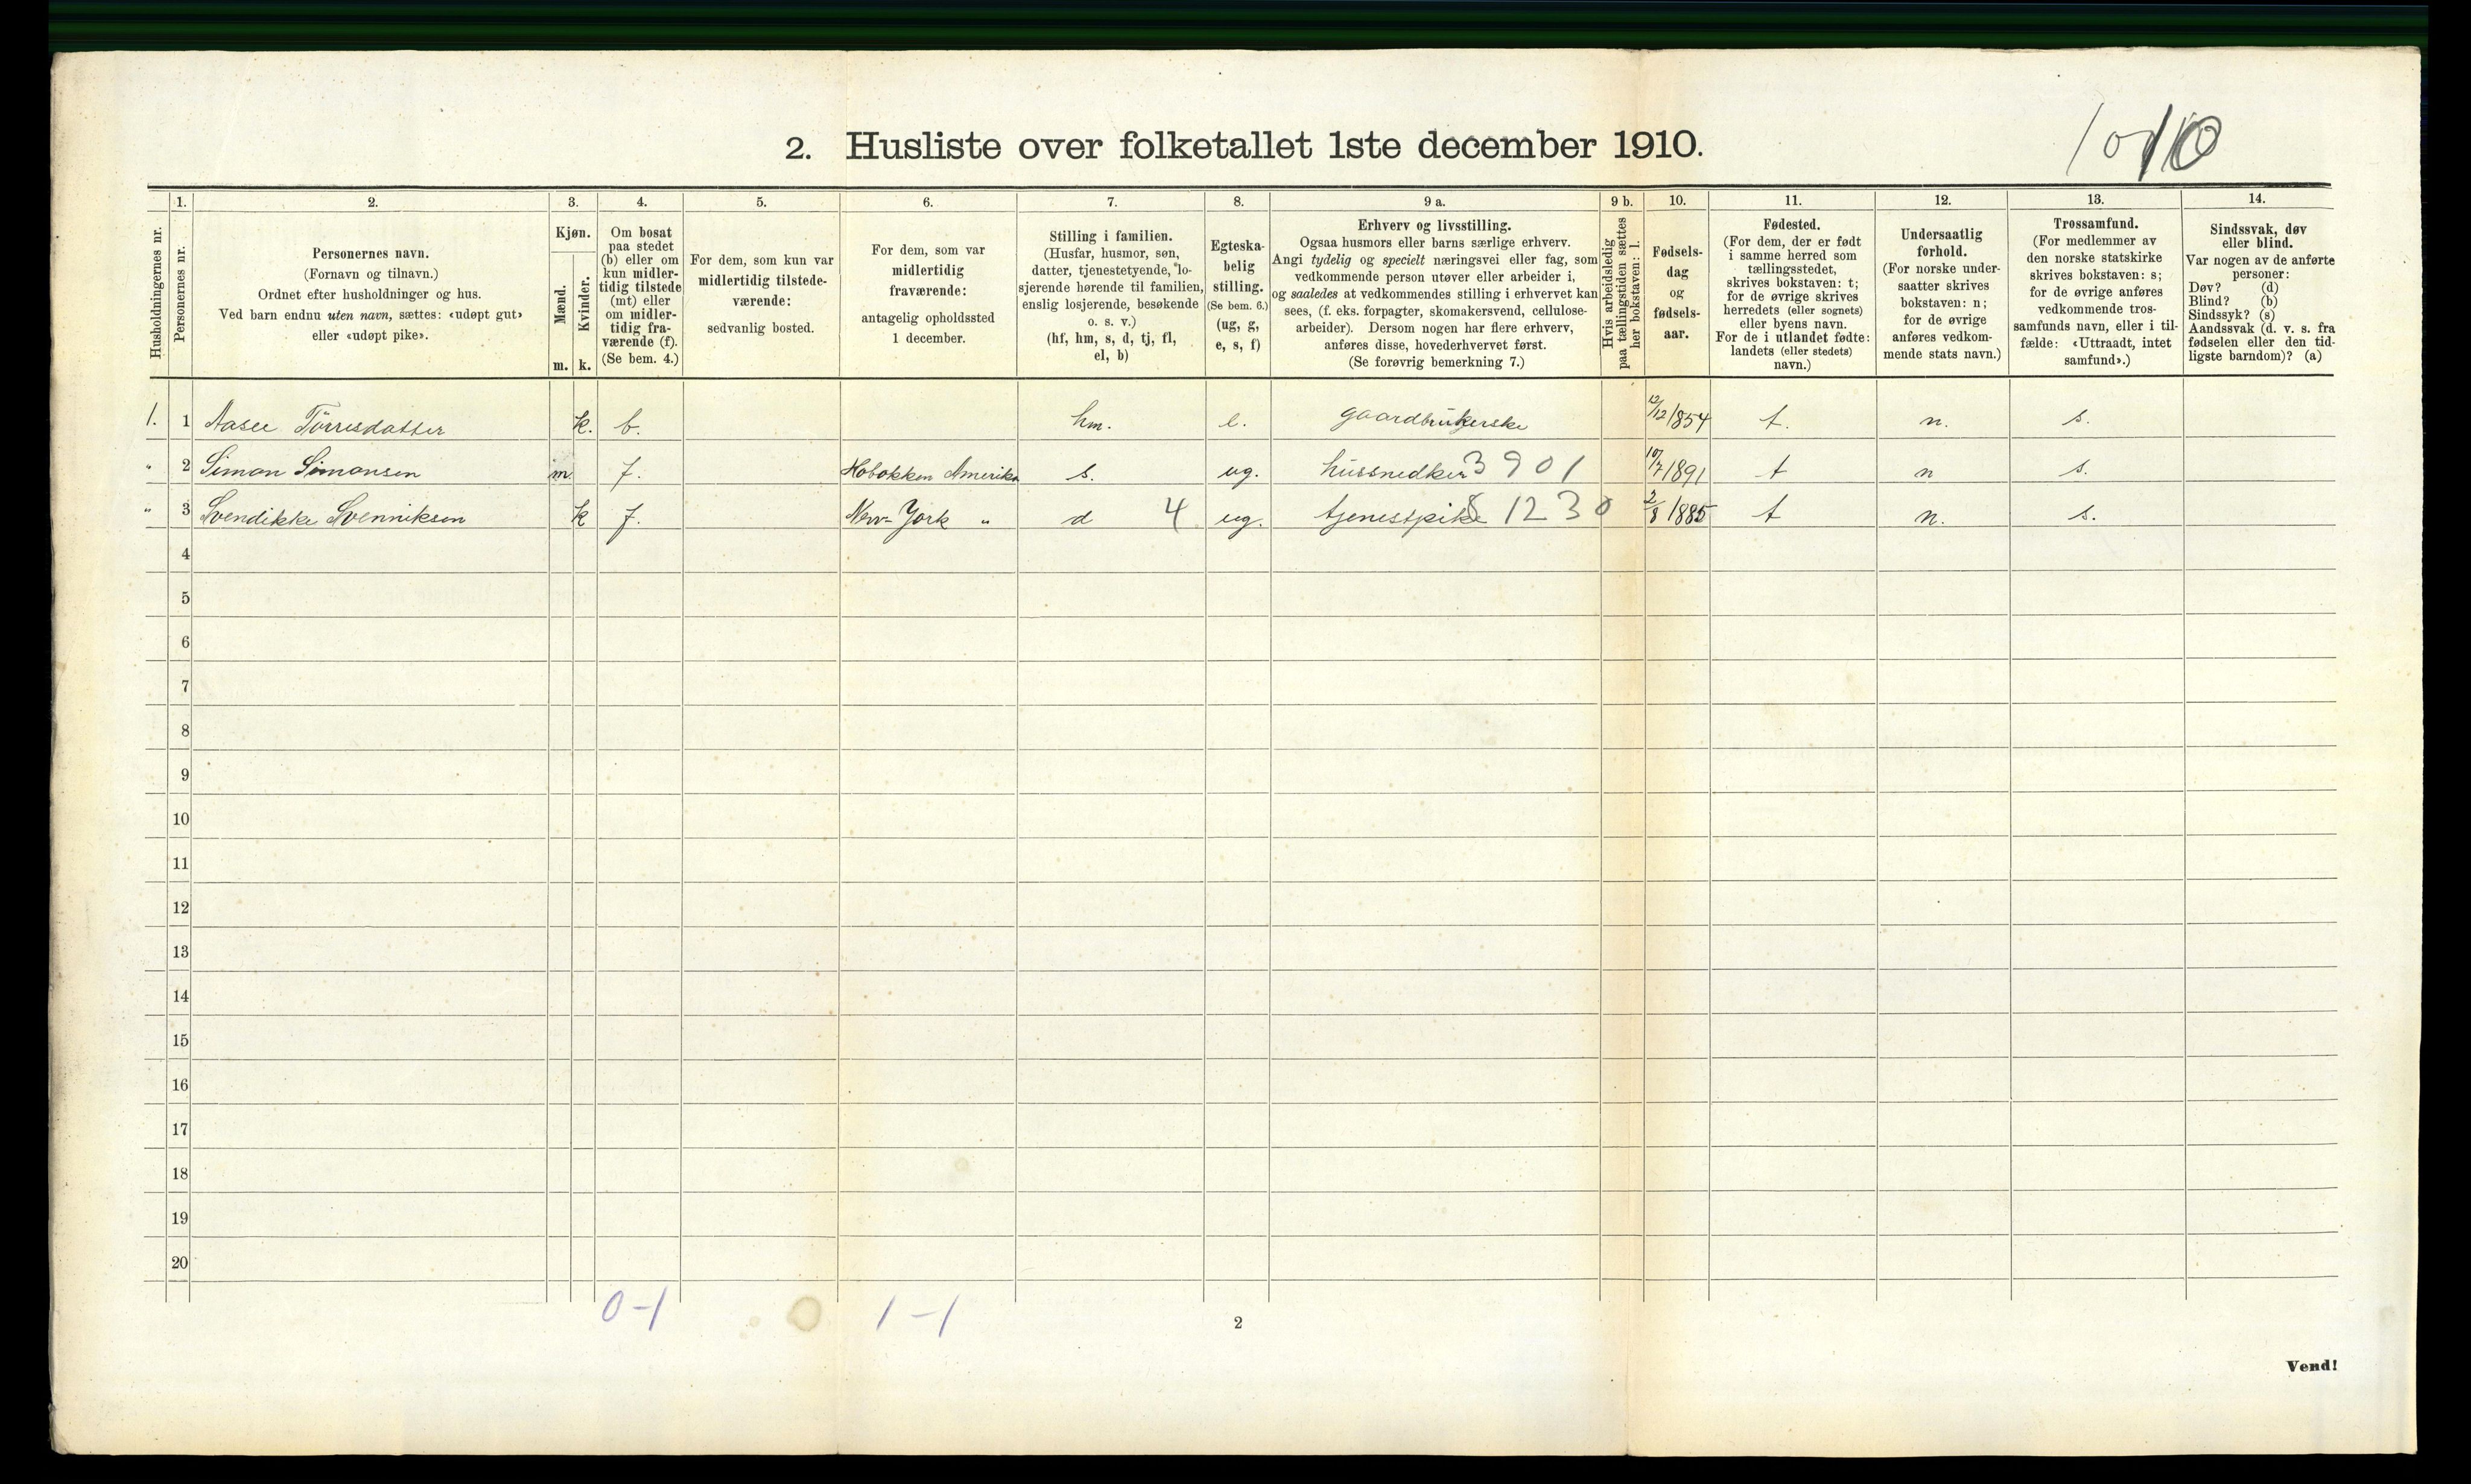 2. Husliste over folketallet 1ste december 1910.
1. 2. 3. 4. 5. 6. 7. 8. 9 a. 9 b. 10. 11. 12. 13. 14.
Husholdningernes nr.
Personernes nr.
Personernes navn.
(Fornavn og tilnavn.)
Ordnet efter husholdninger og hus.
Ved barn endnu uten navn, sættes: «udøpt gut»
eller «udøpt pike».
Kjøn.
Mænd.
Kvinder.
m. k.
Om bosat
paa stedet
(b) eller om
kun midler-
tidig tilstede
(mt) eller
om midler-
tidig fra-
værende (f).
(Se bem. 4.)
For dem, som kun var
midlertidig tilstede-
værende:
sedvanlig bosted.
For dem, som var
midlertidig
fraværende:
antagelig opholdssted
1 december.
Stilling i familien.
(Husfar, husmor, søn,
datter, tjenestetyende, lo-
sjerende hørende til familien,
enslig losjerende, besøkende
o. s. v.)
(hf, hm, s, d, tj, fl,
el, b)
Egteska-
belig
stilling.
(Se bem. 6.)
(ug, g,
e, s, f)
Erhverv og livsstilling.
Ogsaa husmors eller barns særlige erhverv.
Angi tydelig og specielt næringsvei eller fag, som
vedkommende person utøver eller arbeider i,
og saaledes at vedkommendes stilling i erhvervet kan
sees, (f. eks. forpagter, skomakersvend, cellulose-
arbeider). Dersom nogen har flere erhverv,
anføres disse, hovederhvervet først.
(Se forøvrig bemerkning 7.)
Hvis arbeidsledig
paa tællingstiden sættes
her bokstaven: l.
Fødsels-
dag
og
fødsels-
aar.
Fødested.
(For dem, der er født
i samme herred som
tællingsstedet,
skrives bokstaven: t;
for de øvrige skrives
herredets (eller sognets)
eller byens navn.
For de i utlandet fødte:
landets (eller stedets)
navn.)
Undersaatlig
forhold.
(For norske under-
saatter skrives
bokstaven: n;
for de øvrige
anføres vedkom-
mende stats navn.)
Trossamfund.
(For medlemmer av
den norske statskirke
skrives bokstaven: s;
for de øvrige anføres
vedkommende tros-
samfunds navn, eller i til-
fælde: «Uttraadt, intet
samfund».)
Sindssvak, døv
eller blind.
Var nogen av de anførte
personer:
Døv? (d)
Blind? (b)
Sindssyk? (s)
Aandssvak (d. v. s. fra
fødselen eller den tid-
ligste barndom)? (a)
1. 1 Aasee Tørresdatter k. b. hm. e. gaardbrukerske 12/12 1854 t. n. s.
" 2 Simon Simonsen m. f. Hobokken Amerika s. ug. hussnedker 3901 10/7 1891 t n s.
" 3 Svendikke Svenniksen k f. New-York " d 4 ug. tjenestpike 81230 2/8 1885 t n. s.
4
5
6
7
8
9
10
11
12
13
14
15
16
17
18
19
20
0-1 1-1
2
Vend!